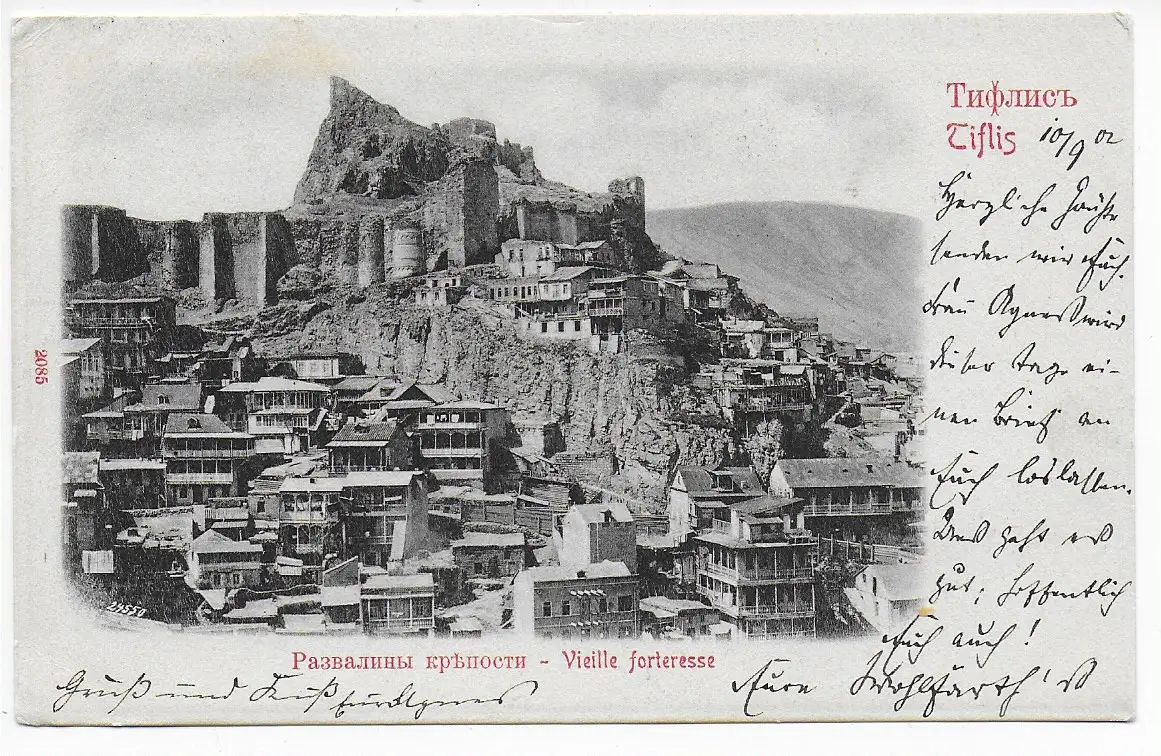 Тифлисъ
Tiflis
10/9 02
Herzliche Grüße
senden wir Euch.
Frau Agnes wird
dieser Tage ei-
nen Brief an
Euch loslassen.
Uns geht es
gut, hoffentlich
Euch auch!
Eure Wohlfarth's
2085
24550
Развалины крѣпости - Vieille forteresse
Gruß und Kuß